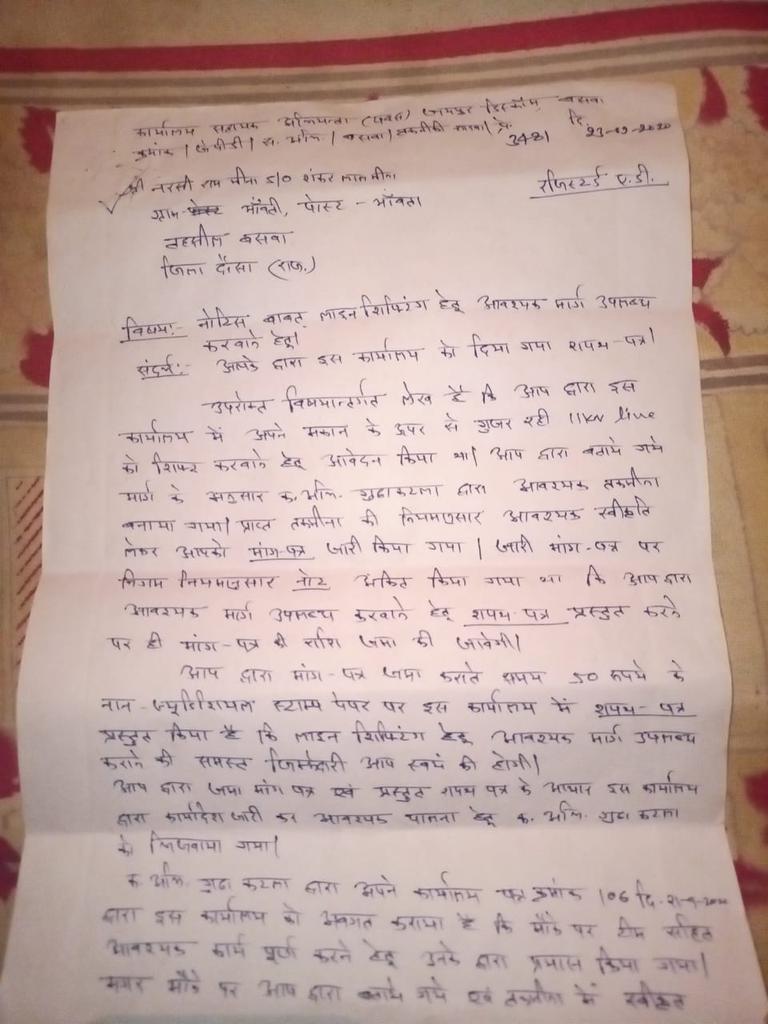 कार्यालय सहायक अभियन्ता (पवस) जयपुर डिस्कॉम, बसवा
क्रमांक / जेवीवी / स. अभि. / बसवा / तकनीकी शाखा / प्रे. 3481 दि. 23-09-2020
श्री नरसी राम मीना S/O शंकर लाल मीना
रजिस्टर्ड ए.डी.
ग्राम भॉवती, पोस्ट - भॉवता
तहसील बसवा
जिला दौसा (राज.)
विषय:- नोटिस बाबत् लाइन शिफ्टिंग हेतु आवश्यक मार्ग उपलब्ध
करवाने हेतु।
संदर्भ:- आपके द्वारा इस कार्यालय को दिया गया शपथ-पत्र।
उपरोक्त विषयान्तर्गत लेख है कि आप द्वारा इस
कार्यालय में अपने मकान के उपर से गुजर रही 11KV line
को शिफ्ट करवाने हेतु आवेदन किया था। आप द्वारा बताये गये
मार्ग के अनुसार क.अभि. गुढाकटला द्वारा आवश्यक तकमीना
बनाया गया। प्राप्त तकमीना की नियमानुसार आवश्यक स्वीकृति
लेकर आपको मांग-पत्र जारी किया गया। जारी मांग-पत्र पर
निगम नियमानुसार नोट अंकित किया गया था कि आप द्वारा
आवश्यक मार्ग उपलब्ध करवाने हेतु शपथ-पत्र प्रस्तुत करने
पर ही मांग-पत्र की राशि जमा की जावेगी।
आप द्वारा मांग-पत्र जमा कराते समय 50 रूपये के
नान-ज्यूडिशियल स्टाम्प पेपर पर इस कार्यालय में शपथ-पत्र
प्रस्तुत किया है कि लाइन शिफ्टिंग हेतु आवश्यक मार्ग उपलब्ध
कराने की समस्त जिम्मेदारी आप स्वयं की होगी।
आप द्वारा जमा मांग पत्र एवं प्रस्तुत शपथ पत्र के आधार इस कार्यालय
द्वारा कार्यादेश जारी कर आवश्यक पालना हेतु क. अभि. गुढा कटला
को भिजवाया गया।
क. अभि. गुढा कटला द्वारा अपने कार्यालय पत्र क्रमांक 106 दि. 21-9-2020
द्वारा इस कार्यालय को अवगत कराया है कि मौके पर टीम सहित
आवश्यक कार्य पूर्ण करने हेतु उनके द्वारा प्रयास किया गया।
मगर मौके पर आप द्वारा बताये गये एवं तकमीना में स्वीकृत